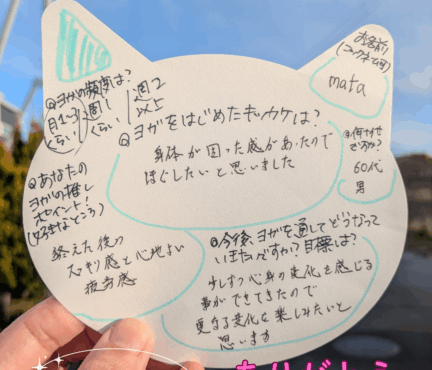 お名前
(ニックネーム可)
mata
Q何才代
ですか?
60代
男
Qヨガの頻度は?
月1~3
くらい
週1
くらい
週2
以上
Qヨガをはじめたキッカケは?
身体が固った感があったので
ほぐしたいと思いました
Qあなたの
ヨガの推し
ポイント!
(好きなところ)
終えた後の
スッキリ感と心地よい
疲労感
Q今後、ヨガを通してどうなって
いきたいですか?目標は?
少しずつ心身の変化を感じる
事ができてきたので
更なる変化を楽しみたいと
思います
ありがとう